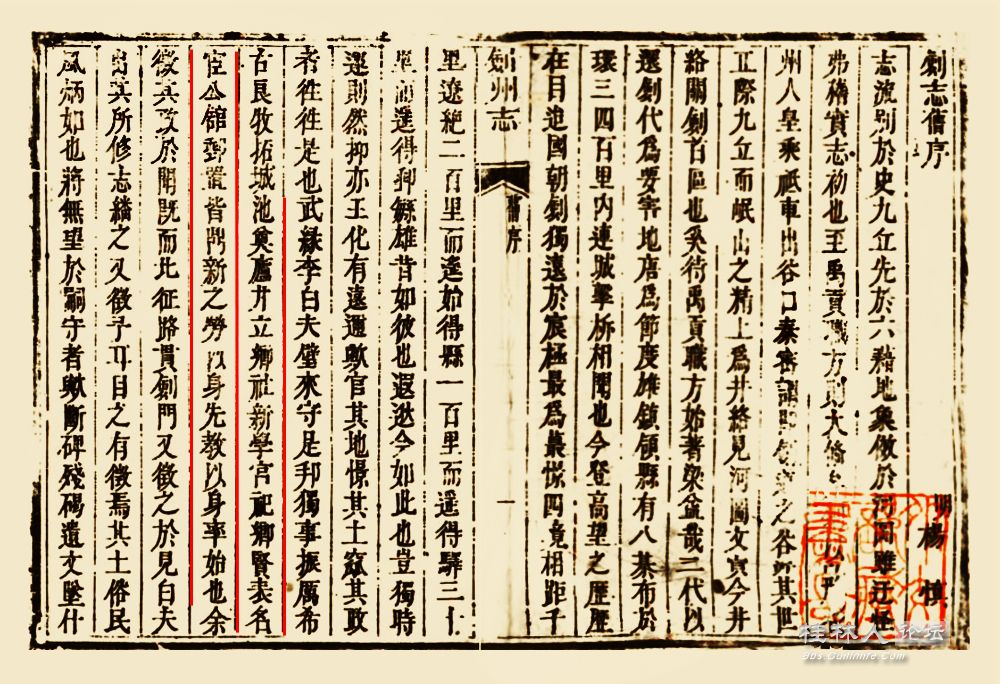 劍志舊序
明 楊慎
志流別於史九丘先於六籍地象倣於河圖雖迂怪
弗稱實志初也至禹貢職方則大備
州人皇乘祗車出谷口秦宓謂即斜之谷所其世
丘際九丘而岷山之精上爲井絡見河圖文實今井
絡關劍首區也奚待禹貢職方始著梁益哉三代以
還劍代爲要害地唐爲節度雄鎮領縣有八棊布於
環三四百里內連城擊柝相聞也今登高望之歷歷
在目迨國朝劍獨遠於宸極最爲曩憬四竟相距千
劍州志
舊序
一
里遼絶二百里而遙始得縣一百里而遥得驛三十
里而遥得郵繇雄昔如彼也遐逖今如此也豈獨時
運則然抑亦王化有遠邇歟官其地憬其土窳其政
者徃徃是也武緣李白夫璧來守是邦獨事振厲希
古良牧拓城池奠廬井立鄉社新學宫祀鄉賢表名
宦公舘郵置皆鼎新之勞以身先教以身率始也余
徵其政於聞旣而北征路貫劍門又徵之於見白夫
出其所修志繙之又徵予耳目之有徵焉其土俗民
風炳如也將無望於嗣守者歟斷碑殘碣遺文墜什
桂林人论坛
bbs.Guilinlife.com